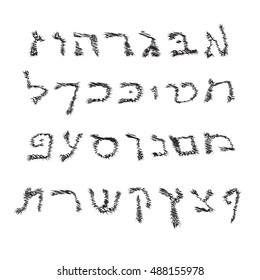 א ב ג ד ה ו ז
ח ט י כ ך ל
מ ם נ ן ס ע פ
ף צ ץ ק ר ש ת
shutterstock.com · 488155978